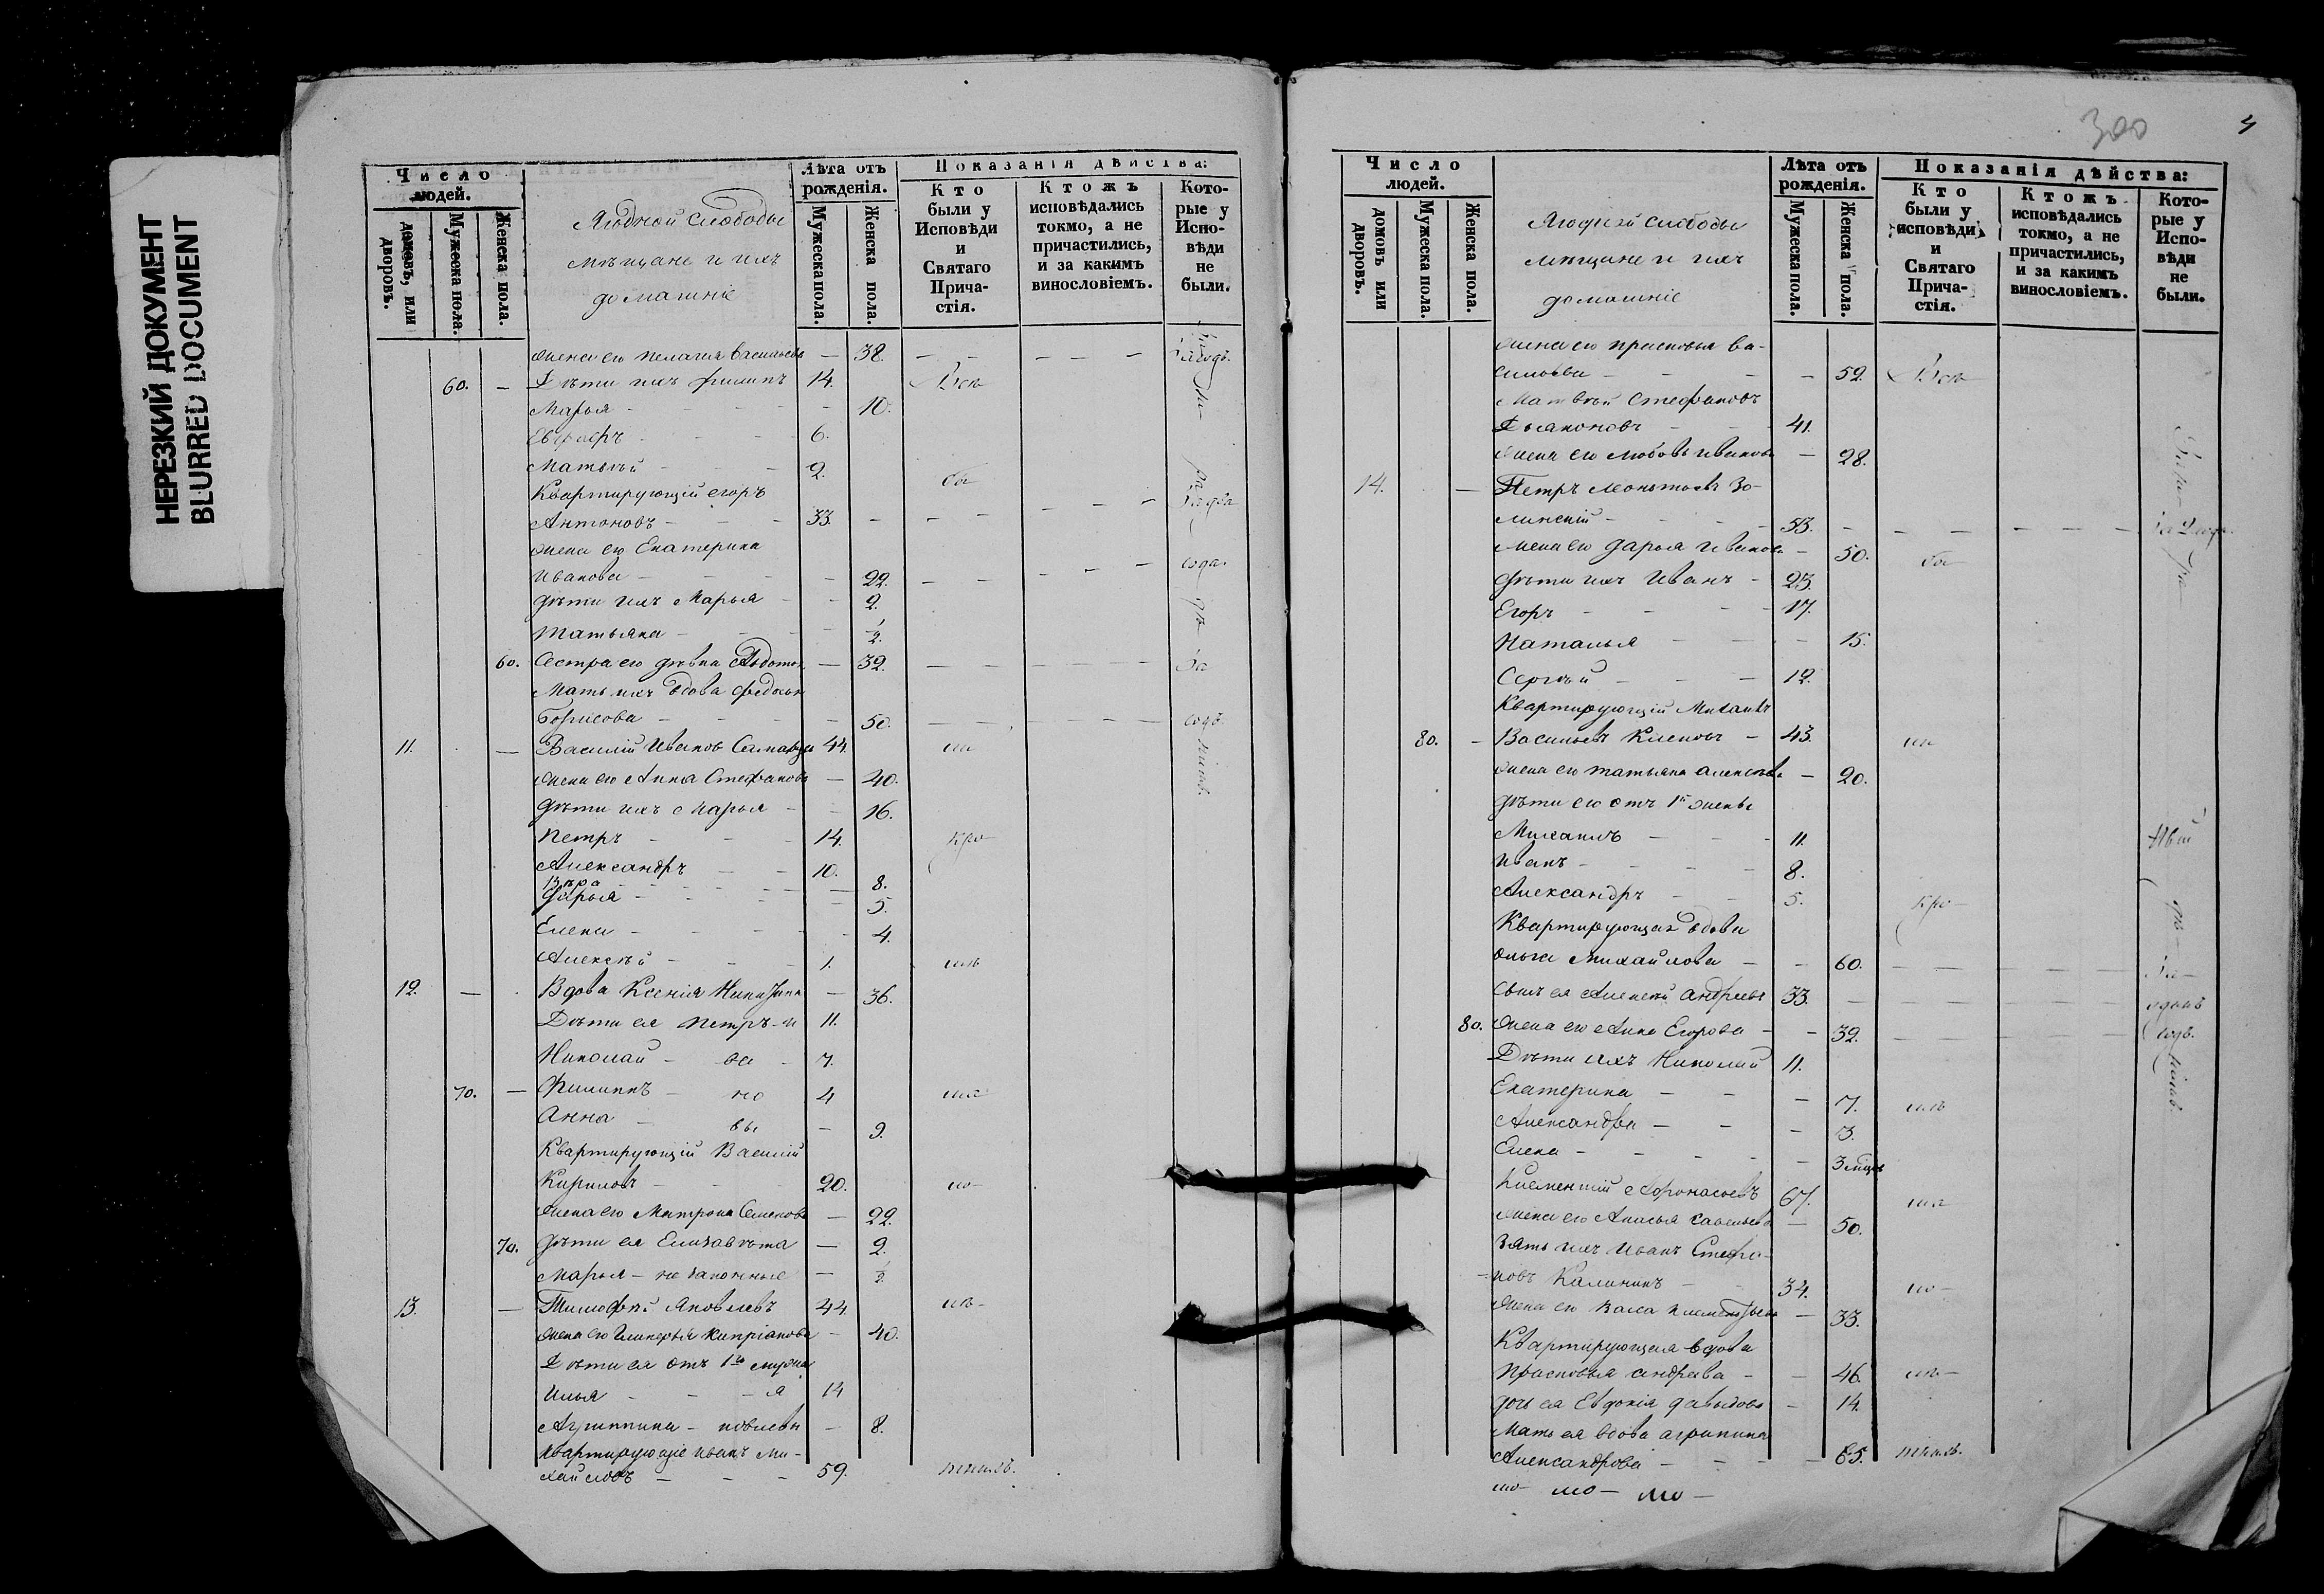 НЕРЕЗКИЙ ДОКУМЕНТ
BLURRED DOCUMENT
Число людей.
домовъ, или дворовъ.
Мужеска пола.
Женска пола.
Людной слободы
мѣщане и ихъ
домашніе
Лѣта отъ рожденія.
Мужеска пола.
Женска пола.
Показанія дѣйства:
Кто были у Исповѣди и Святаго Прича-стія.
Ктожъ исповѣдались токмо, а не причастились, и за какимъ винословіемъ.
Кото-рые у Испо-вѣди не были.
жена его Пелагия Васильева — 38.
60. — Дѣти ихъ Филипъ 14.
Марья — 10.
Евграфъ 6.
Матвѣй 2.
Квартирующій Егоръ
Антоновъ 33.
жена его Екатерина
Иванова — 22.
дѣти ихъ Марья — 2.
Татьяна — ½.
60. Сестра его дѣвка Авдотья — 32.
Мать ихъ вдова Федосья
Борисова — 50.
11. — Василій Ивановъ 44.
жена его Анна Стефанова — 40.
дѣти ихъ Марья — 16.
Петръ 14.
Александръ 10.
Вѣра — 8.
Дарья — 5.
Елена — 4.
Алексѣй 1.
12. — Вдова Ксенія — 36.
Дѣти ея Петръ 11.
Николай 7.
70. — Филиппъ 4
Анна — 9.
Квартирующій Василій
Кириловъ 20.
жена его Матрона Семенова — 22.
70. дѣти ея Елизавѣта — 2.
Марья — не законные — ½
13. — Тимофѣй Яковлевъ 44
жена его Гликерья Кипріанова — 40.
Дѣти ея отъ 1го мужа
Илья 14
Агриппина — 8.
Квартирующіе Иванъ Ми-
хайловъ 59.
300
4
Число людей.
домовъ или дворовъ.
Мужеска пола.
Женска пола.
Людной слободы
мѣщане и ихъ
домашніе
Лѣта отъ рожденія.
Мужеска пола.
Женска пола.
Показанія дѣйства:
Кто были у исповѣди и Святаго Прича-стія.
Ктожъ исповѣдались токмо, а не причастились, и за какимъ винословіемъ.
Кото-рые у Испо-вѣди не были.
жена его Прасковья Ва-
сильева — 52.
Матвѣй Стефановъ
Дьяконовъ 41.
жена его Любовь Иванова — 28.
14. — Петръ Леонтьевъ Зо-
линскій 53.
жена его Дарья Иванова — 50.
дѣти ихъ Иванъ 23.
Егоръ 17.
Наталья — 15.
Сергѣй 12.
Квартирующій Михаилъ
80. — Васильевъ 43.
жена его Татьяна Алексѣева — 20.
дѣти его отъ 1й жены
Михаилъ 11.
Иванъ 8.
Александръ 5.
Квартирующая вдова
Ольга Михайлова — 60.
Сынъ ея Алексѣй Андреевъ 33.
80. жена его Анна Егорова — 32.
Дѣти ихъ Николай 11.
Екатерина — 7.
Александра — 3.
Елена — 3 мѣс.
Климентій Афонасьевъ 67.
жена его Анисья Савельева — 50.
Зять ихъ Иванъ Стефа-
новъ Калининъ 34.
жена его Васса Климентьева — 33.
Квартирующая вдова
Прасковья Андреева — 46.
дочь ея Евдокія Давыдова — 14
Мать ея вдова Агрипина
Александрова — 65.